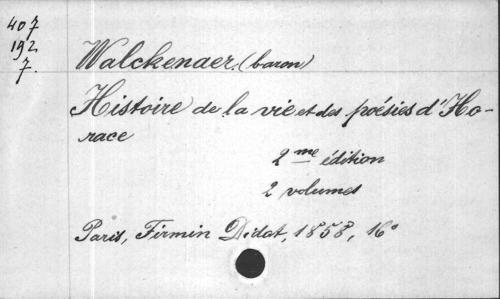 407
192
7.
Walckenaer. (baron)
Histoire de la vie et des poésies d'Ho-
race
2me édition
2 volumes
Paris, Firmin Didot, 1858, 16°